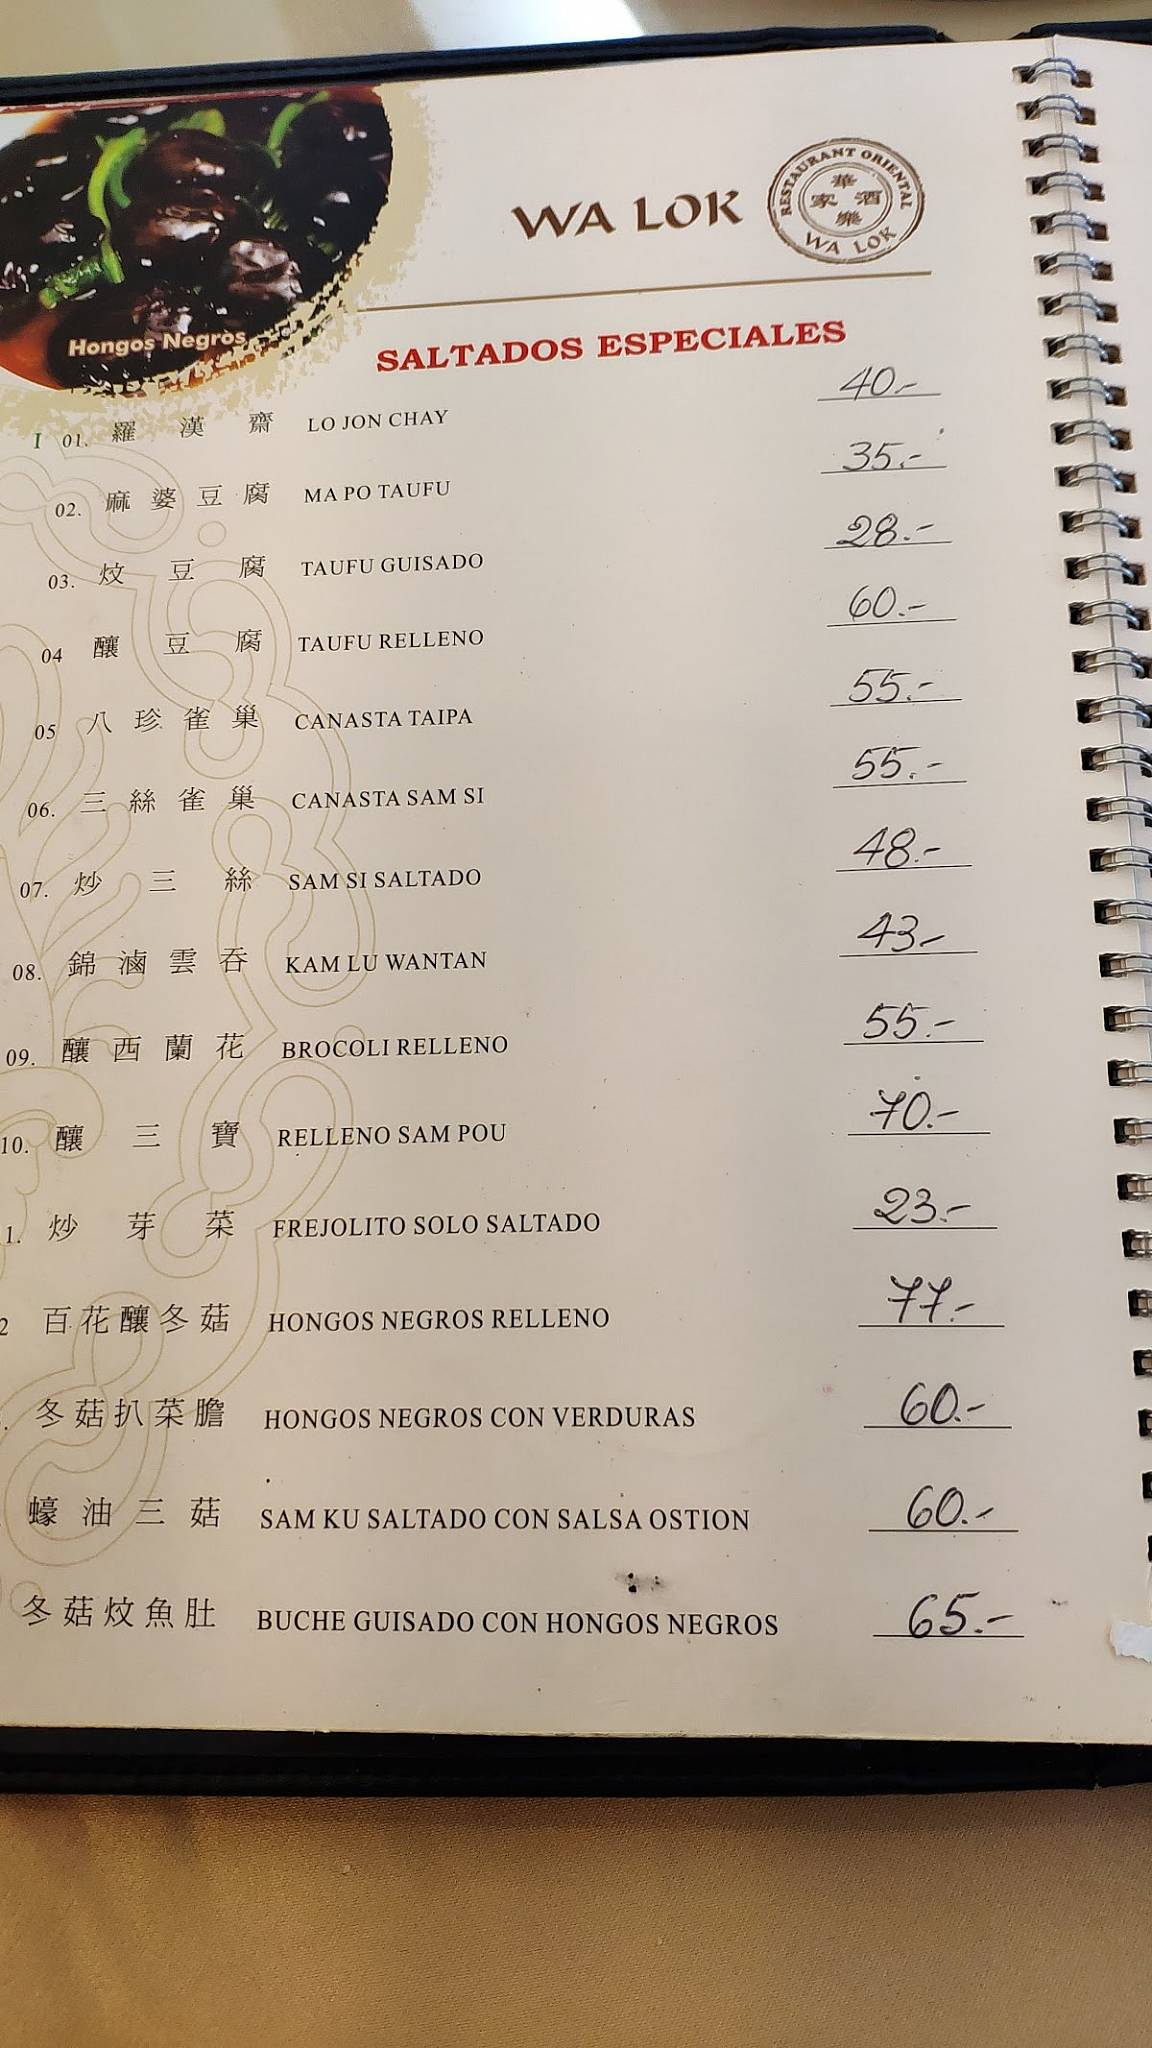 Hongos Negros
WA LOK
RESTAURANT ORIENTAL
華
家 酒
樂
WA LOK
SALTADOS ESPECIALES
I 01. 羅漢齋 LO JON CHAY 40.-
02. 麻婆豆腐 MA PO TAUFU 35.-
03. 炆豆腐 TAUFU GUISADO 28.-
04 釀豆腐 TAUFU RELLENO 60.-
05 八珍雀巢 CANASTA TAIPA 55.-
06. 三絲雀巢 CANASTA SAM SI 55.-
07. 炒三絲 SAM SI SALTADO 48.-
08. 錦滷雲吞 KAM LU WANTAN 43.-
09. 釀西蘭花 BROCOLI RELLENO 55.-
10. 釀三寶 RELLENO SAM POU 70.-
1. 炒芽菜 FREJOLITO SOLO SALTADO 23.-
2 百花釀冬菇 HONGOS NEGROS RELLENO 77.-
冬菇扒菜膽 HONGOS NEGROS CON VERDURAS 60.-
蠔油三菇 SAM KU SALTADO CON SALSA OSTION 60.-
冬菇炆魚肚 BUCHE GUISADO CON HONGOS NEGROS 65.-